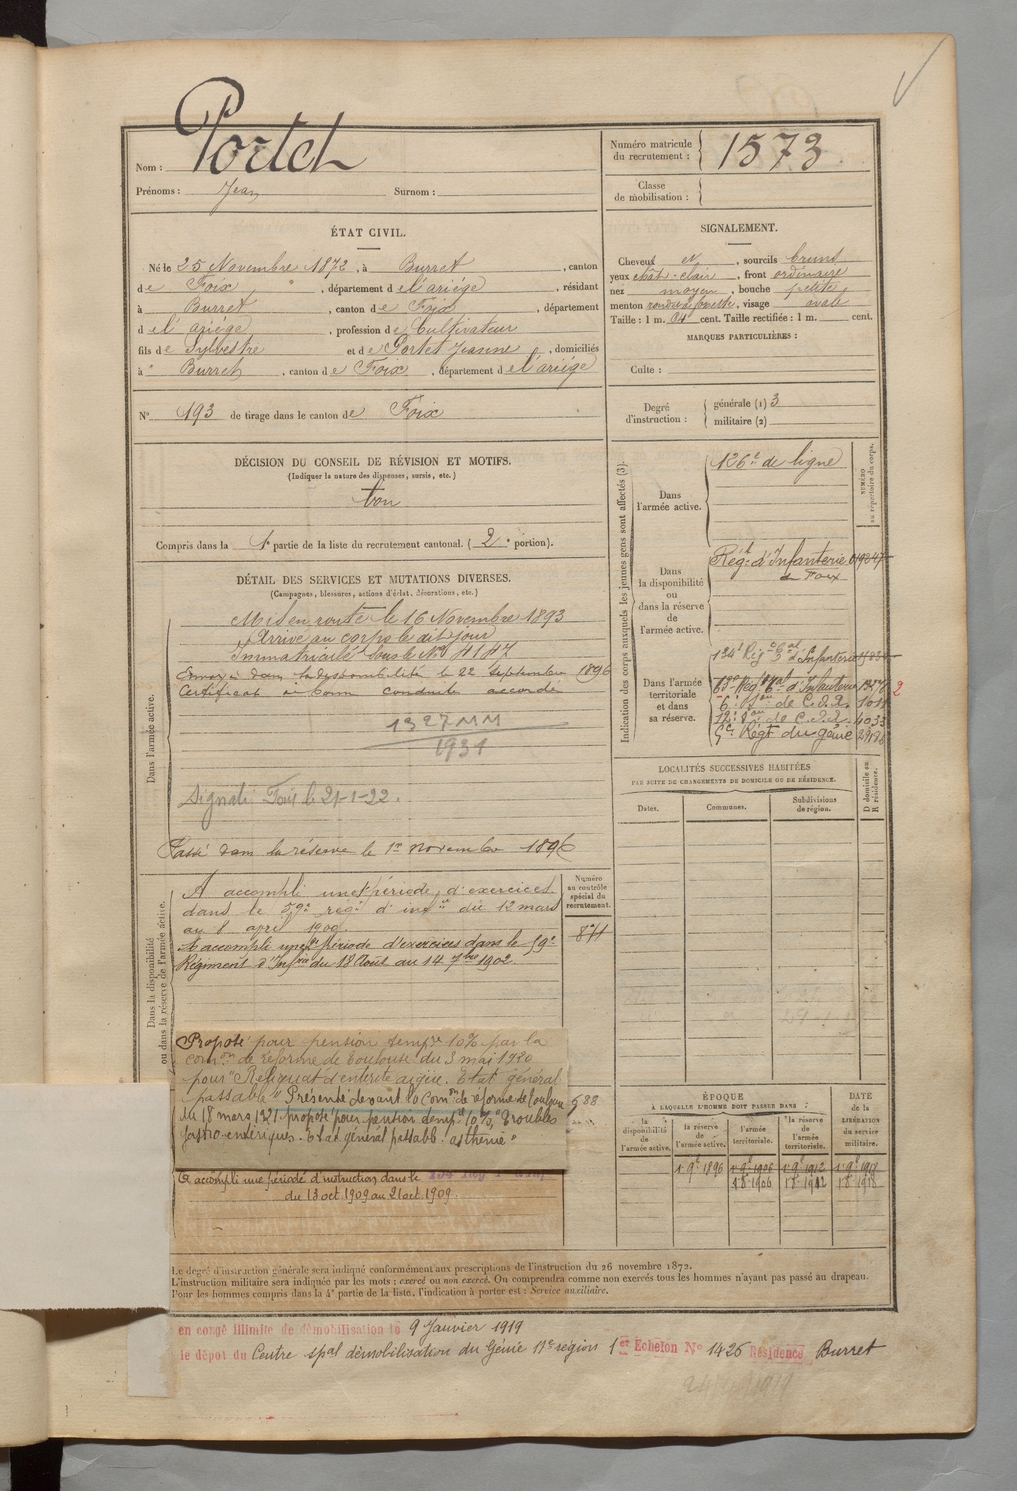 Nom : Portet
Prénoms : Jean Surnom :
Numéro matricule du recrutement : 1573
Classe de mobilisation :
ÉTAT CIVIL.
Né le 25 Novembre 1872, à Burret, canton
de Foix, département de l'ariége, résidant
à Burret, canton de Foix, département
d el' ariége, profession de Cultivateur
fils de Sylvestre et de Portet Jeanne, domiciliés
à Burret, canton de Foix, département de l'ariége
N° 193 de tirage dans le canton de Foix
SIGNALEMENT.
Cheveux et, sourcils bruns
yeux chât-clair, front ordinaire
nez moyen, bouche petite
menton rond, visage ovale
Taille : 1 m. cent. Taille rectifiée : 1 m. cent.
MARQUES PARTICULIÈRES :
Culte :
Degré d'instruction : générale (1) 3
militaire (2)
DÉCISION DU CONSEIL DE RÉVISION ET MOTIFS.
(Indiquer la nature des dispenses, sursis, etc.)
bon
Compris dans la 1e partie de la liste du recrutement cantonal. ( 2e portion).
DÉTAIL DES SERVICES ET MUTATIONS DIVERSES.
(Campagnes, blessures, actions d'éclat, décorations, etc.)
Dans l'armée active.
Mis en route le 16 Novembre 1893
Arrivé au corps le dit jour
Immatriculé sous le No 4147
Envoyé dans la disponibilité le 22 Septembre 1896
Certificat de bonne conduite accordé
1327 MM
1931
Signalé Foix le 21-1-22.
Passé dans la réserve le 1er novembre 1896
Indication des corps auxquels les jeunes gens sont affectés (3).
NUMÉRO au répertoire du corps.
Dans l'armée active.
126e de ligne
Dans la disponibilité ou dans la réserve de l'armée active.
Régt d'Infanterie
de Foix
Dans l'armée territoriale et dans sa réserve.
134e Régt Tal d'Infanterie
d'Infanterie
2
de C.O.A.
de C.O.A.
Régt du génie
LOCALITÉS SUCCESSIVES HABITÉES
PAR SUITE DE CHANGEMENTS DE DOMICILE OU DE RÉSIDENCE.
Dates. Communes. Subdivisions de région. D domicile ou R résidence.
Dans la disponibilité ou dans la réserve de l'armée active.
Numéro au contrôle spécial du recrutement.
A accompli une 1re période d'exercices
dans le 59e régt d'infie du 12 mars
au 8 april 1900.
A accompli une 2e période d'exercices dans le 59e
Régiment d'Infie du 18 Août au 14 7bre 1902.
Proposé pour pension tempre 10% par la
comon de réforme de Toulouse du 3 mai 1920
pour "Reliquat d'entérite aigüe. Etat général
passable" Présenté devant la Comon de réforme de Toulouse
du 18 mars 1921 proposé pour pension temp. 10%, "Troubles
gastro-entériques. Etat général passable. asthénie"
588
A accompli une période d'instruction dans le
du 13 oct. 1909 au 21 oct. 1909.
ÉPOQUE
À LAQUELLE L'HOMME DOIT PASSER DANS :
la disponibilité de l'armée active. la réserve de l'armée active. l'armée territoriale. la réserve de l'armée territoriale.
DATE de la LIBÉRATION du service militaire.
1 9e 1896 1 9e 1906 1 9e 1912 1 9e 1918
1 8 1906 1 8 1912 1 8 1918
Le degré d'instruction générale sera indiqué conformément aux prescriptions de l'instruction du 26 novembre 1872.
L'instruction militaire sera indiquée par les mots : exercé ou non exercé. On comprendra comme non exercés tous les hommes n'ayant pas passé au drapeau.
Pour les hommes compris dans la 4e partie de la liste, l'indication à porter est : Service auxiliaire.
en congé illimité de démobilisation le 9 Janvier 1919
le dépôt du Centre spal démobilization du Génie 17e région 1er Echelon No 1426 Résidence Burret